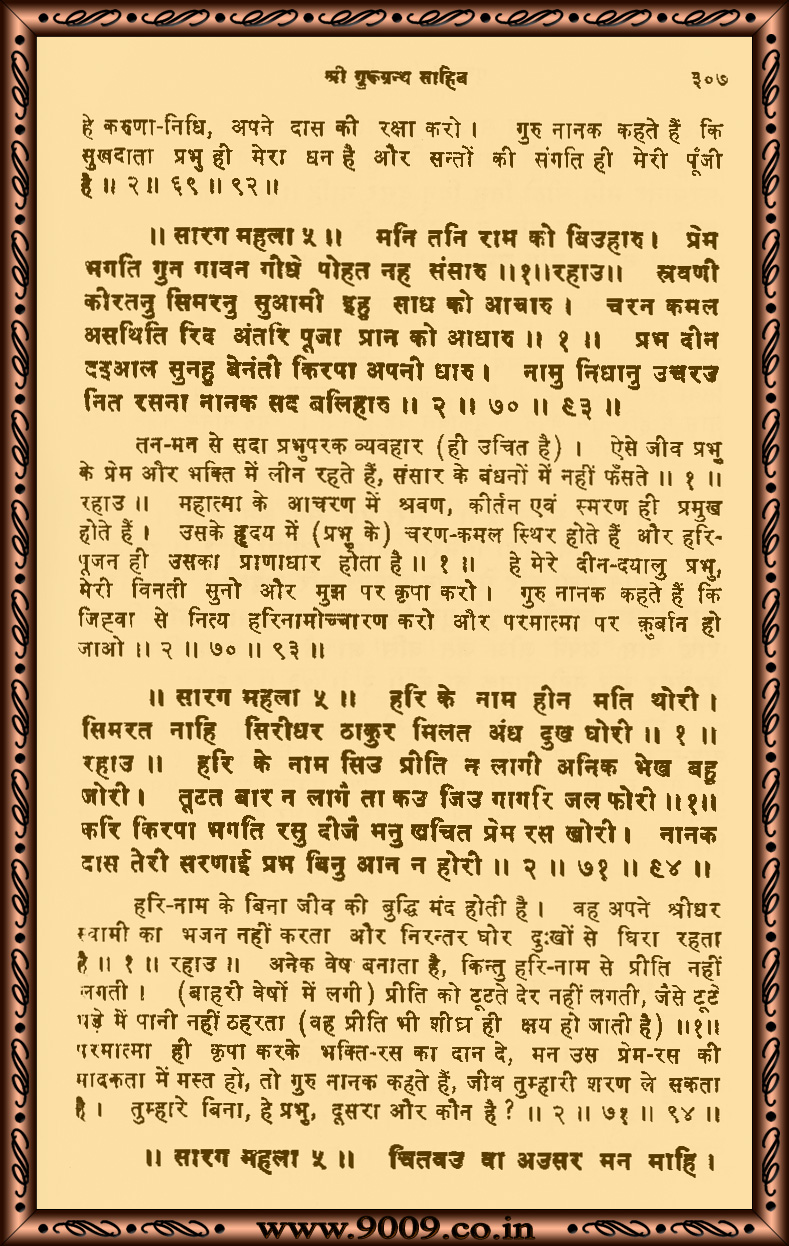 श्री गुरुग्रन्थ साहिब ३०७
हे करुणा-निधि, अपने दास की रक्षा करो । गुरु नानक कहते हैं कि
सुखदाता प्रभु ही मेरा धन है और सन्तों की संगति ही मेरी पूँजी
है ॥ २ ॥ ६९ ॥ ९२ ॥
॥ सारग महला ५ ॥ मनि तनि राम को बिउहारु । प्रेम
भगति गुन गावन गीधे पोहत नह संसारु ॥१॥रहाउ॥ स्रवणी
कीरतनु सिमरनु सुआमी इहु साध को आचारु । चरन कमल
असथिति रिद अंतरि पूजा प्रान को आधारु ॥ १ ॥ प्रभ दीन
दइआल सुनहु बेनंती किरपा अपनी धारु । नामु निधानु उचरउ
नित रसना नानक सद बलिहारु ॥ २ ॥ ७० ॥ ९३ ॥
तन-मन से सदा प्रभुपरक व्यवहार (ही उचित है) । ऐसे जीव प्रभु
के प्रेम और भक्ति में लीन रहते हैं, संसार के बंधनों में नहीं फँसते ॥ १ ॥
रहाउ ॥ महात्मा के आचरण में श्रवण, कीर्तन एवं स्मरण ही प्रमुख
होते हैं । उसके हृदय में (प्रभु के) चरण-कमल स्थिर होते हैं और हरि-
पूजन ही उसका प्राणाधार होता है ॥ १ ॥ हे मेरे दीन-दयालु प्रभु,
मेरी विनती सुनो और मुझ पर कृपा करो । गुरु नानक कहते हैं कि
जिह्वा से नित्य हरिनामोच्चारण करो और परमात्मा पर क़ुर्बान हो
जाओ ॥ २ ॥ ७० ॥ ९३ ॥
॥ सारग महला ५ ॥ हरि के नाम हीन मति थोरी ।
सिमरत नाहि सिरीधर ठाकुर मिलत अंध दुख घोरी ॥ १ ॥
रहाउ ॥ हरि के नाम सिउ प्रीति न लागी अनिक भेख बहु
जोरी । तूटत बार न लागै ता कउ जिउ गागरि जल फोरी ॥१॥
करि किरपा भगति रसु दीजै मनु खचित प्रेम रस खोरी । नानक
दास तेरी सरणाई प्रभ बिनु आन न होरी ॥ २ ॥ ७१ ॥ ९४ ॥
हरि-नाम के बिना जीव की बुद्धि मंद होती है । वह अपने श्रीधर
स्वामी का भजन नहीं करता और निरन्तर घोर दुःखों से घिरा रहता
है ॥ १ ॥ रहाउ ॥ अनेक वेष बनाता है, किन्तु हरि-नाम से प्रीति नहीं
लगती । (बाहरी वेषों में लगी) प्रीति को टूटते देर नहीं लगती, जैसे टूटे
घड़े में पानी नहीं ठहरता (वह प्रीति भी शीघ्र ही क्षय हो जाती है) ॥१॥
परमात्मा ही कृपा करके भक्ति-रस का दान दे, मन उस प्रेम-रस की
मादकता में मस्त हो, तो गुरु नानक कहते हैं, जीव तुम्हारी शरण ले सकता
है । तुम्हारे बिना, हे प्रभु, दूसरा और कौन है ? ॥ २ ॥ ७१ ॥ ९४ ॥
॥ सारग महला ५ ॥ चितवउ वा अउसर मन माहि ।
www.9009.co.in